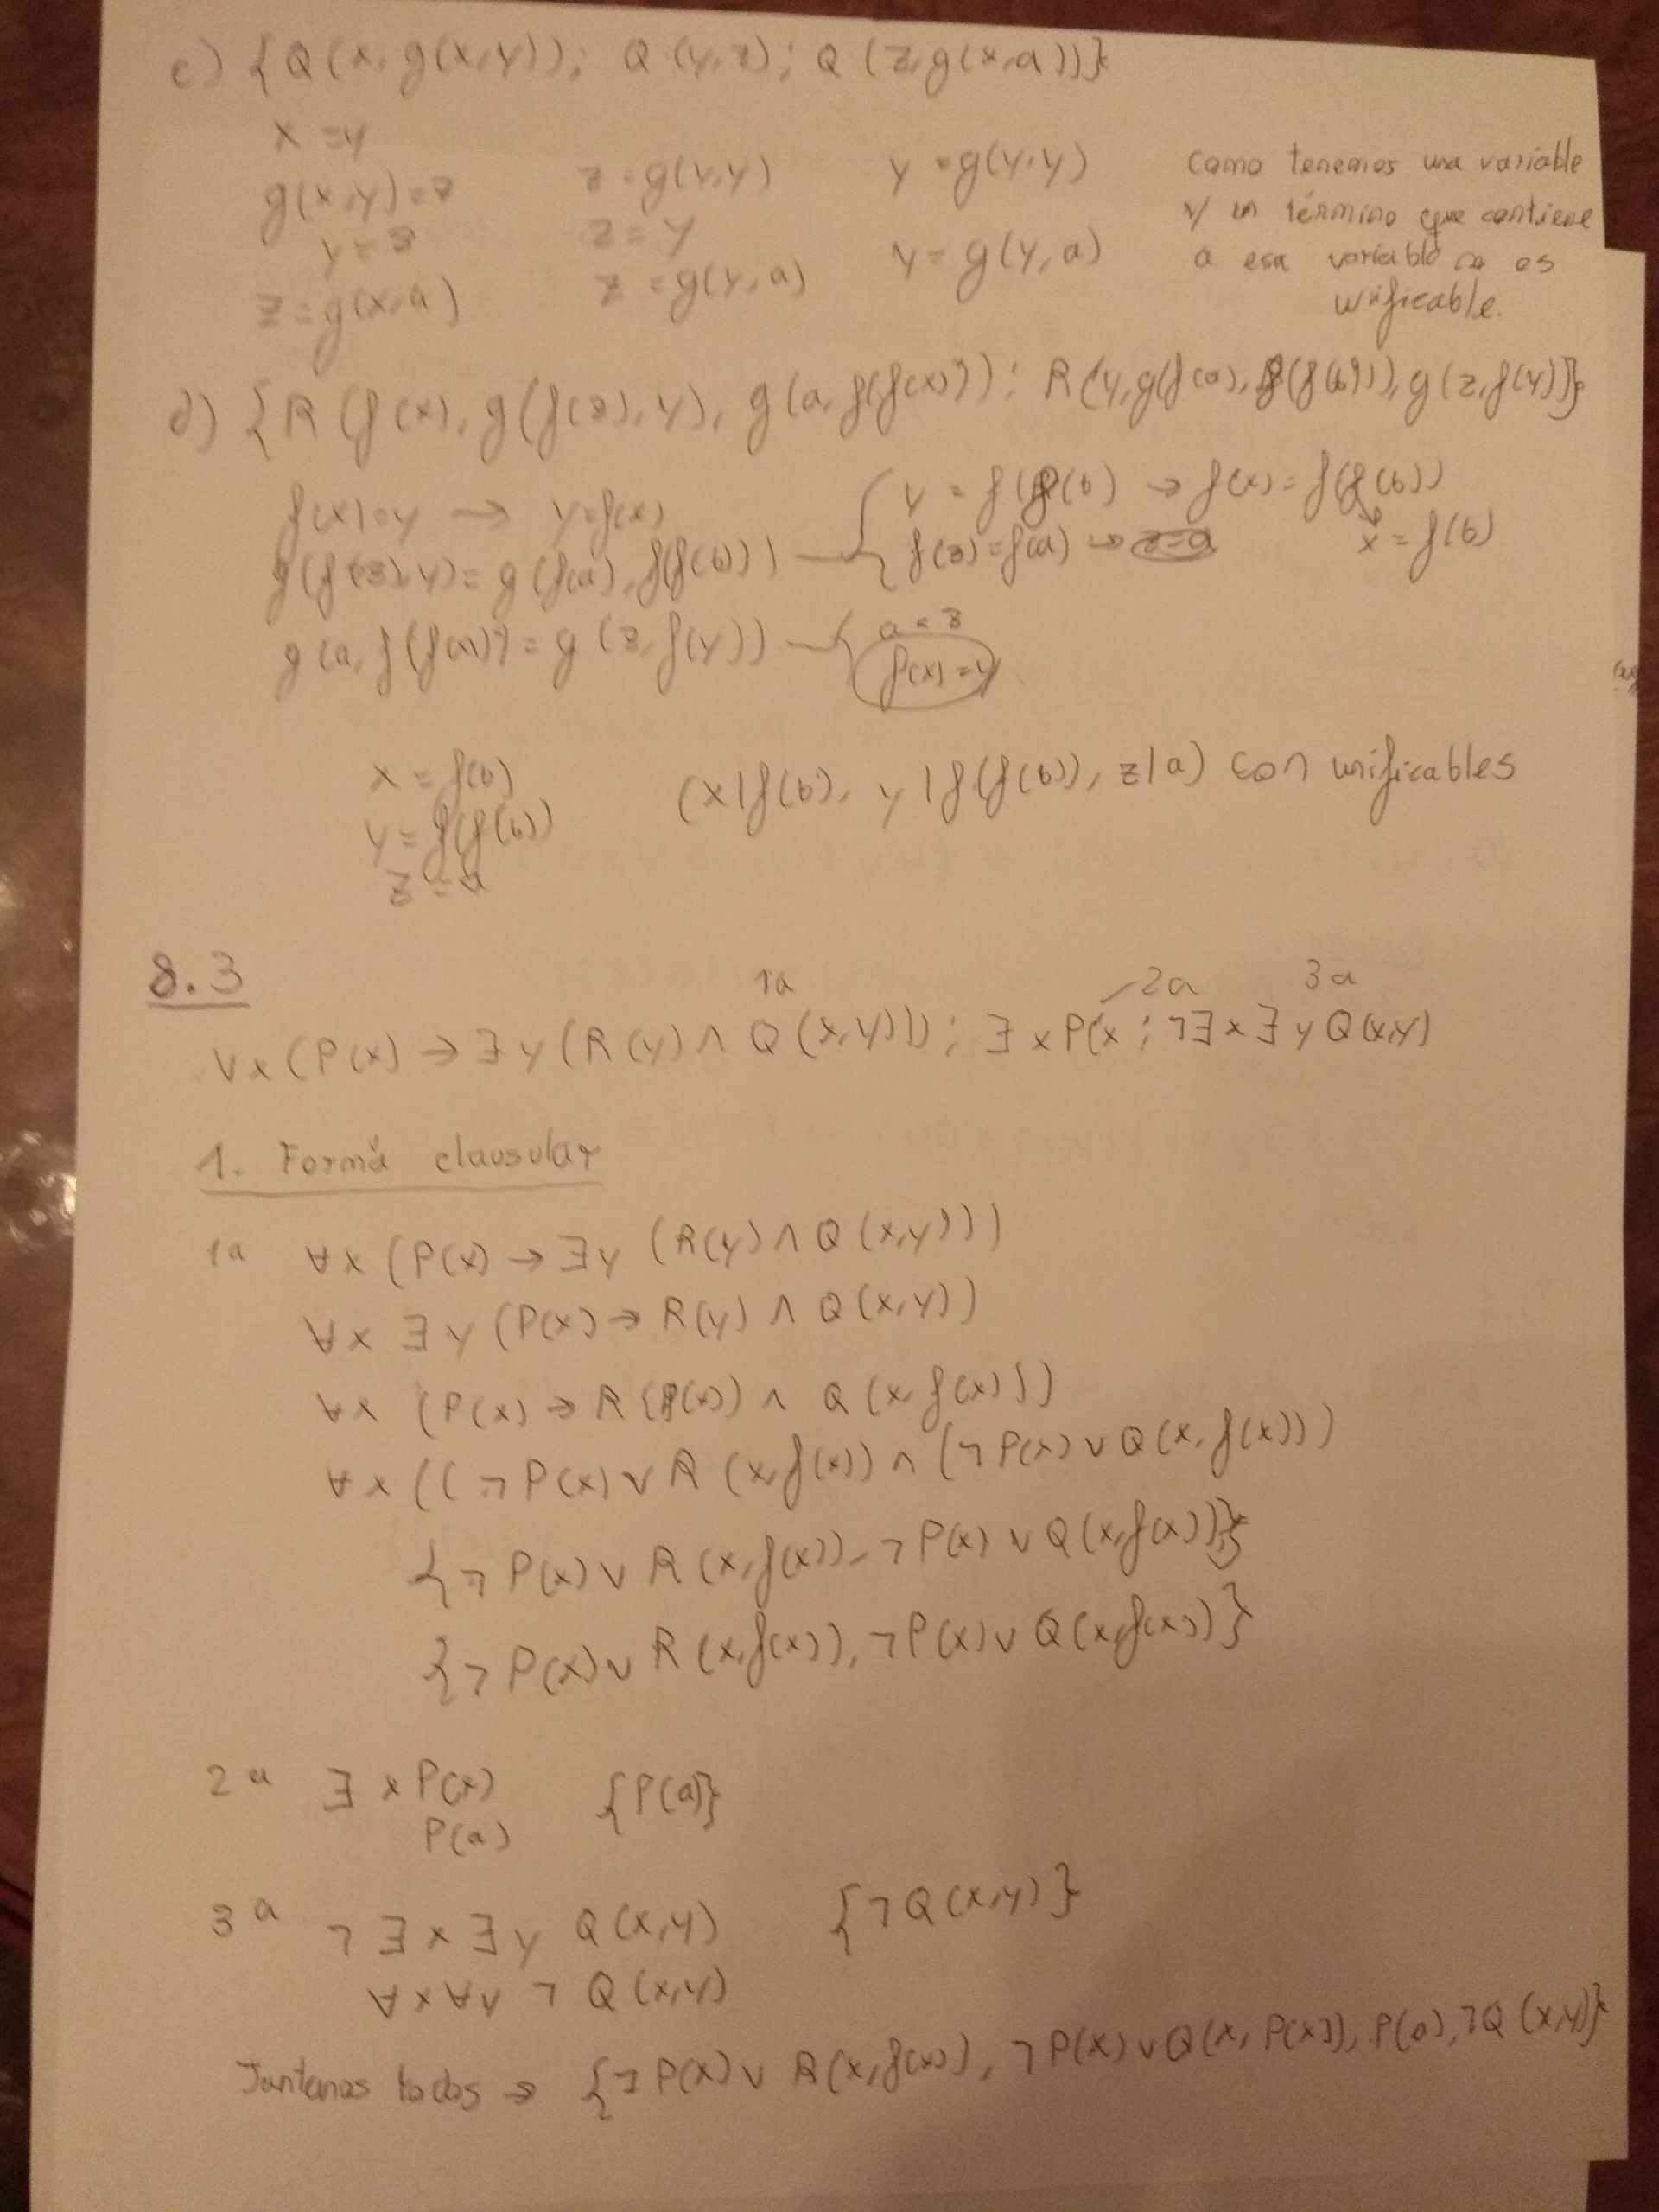 c) {Q(x, g(x,y)); Q(y,z); Q(z,g(x,a))}
x = y
g(x,y) = z
y = z
z = g(x,a)
z = g(y,y)
z = y
z = g(y,a)
y = g(y,y)
y = g(y,a)
como tenemos una variable
y un término que contiene
a esa variable no es
unificable.
d) {R(f(x), g(f(z),y), g(a,f(f(x)))); R(y,g(f(a),f(f(b))),g(z,f(y))}
f(x) = y → y = f(x)
g(f(z),y) = g(f(a),f(f(b)))
y = f(f(b) → f(x) = f(f(b))
x = f(b)
f(z) = f(a) → z = a
g(a,f(f(x))) = g(z,f(y))
a = z
f(x) = y
x = f(b)
y = f(f(b))
z = a
(x|f(b), y|f(f(b)), z|a) son unificables
8.3
1a 2a 3a
∀x(P(x) → ∃y(R(y) ∧ Q(x,y))); ∃xP(x ; ¬∃x∃yQ(x,y)
1. Forma clausular
1a ∀x (P(x) → ∃y (R(y) ∧ Q(x,y)))
∀x ∃y (P(x) → R(y) ∧ Q(x,y))
∀x (P(x) → R(f(x)) ∧ Q(x,f(x)))
∀x ((¬P(x) ∨ R(x,f(x)) ∧ (¬P(x) ∨ Q(x,f(x)))
{¬P(x) ∨ R(x,f(x)), ¬P(x) ∨ Q(x,f(x))}
{¬P(x) ∨ R(x,f(x)), ¬P(x) ∨ Q(x,f(x))}
2a ∃xP(x) {P(a)}
P(a)
3a ¬∃x∃y Q(x,y) {¬Q(x,y)}
∀x∀y ¬Q(x,y)
Juntamos todos → {¬P(x) ∨ R(x,f(x)), ¬P(x) ∨ Q(x, P(x)), P(a), ¬Q(x,y)}